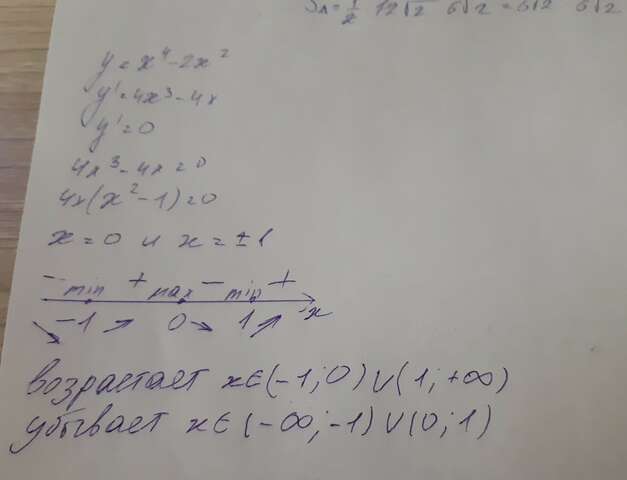 Sл=1/2 12√2 6√2 = 6√2 6√2
y = x⁴-2x²
y'=4x³-4x
y'=0
4x³-4x=0
4x(x²-1)=0
x=0 и x=±1
- min + max - min +
-1 0 1 x
возрастает x∈(-1;0)∪(1;+∞)
убывает x∈(-∞;-1)∪(0;1)